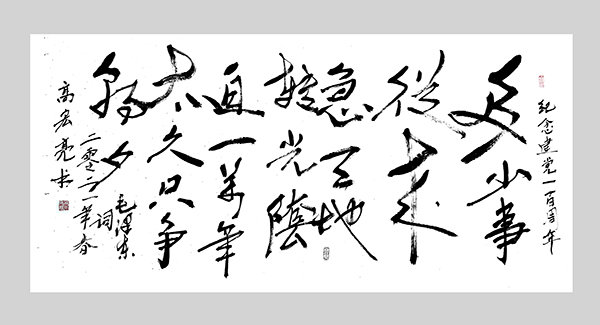 纪念建党一百周年
多少事
從来
急天地
轉光陰
迫一萬年
太久只争
朝夕
毛澤东
詞
二零二一年春
高宏亮书